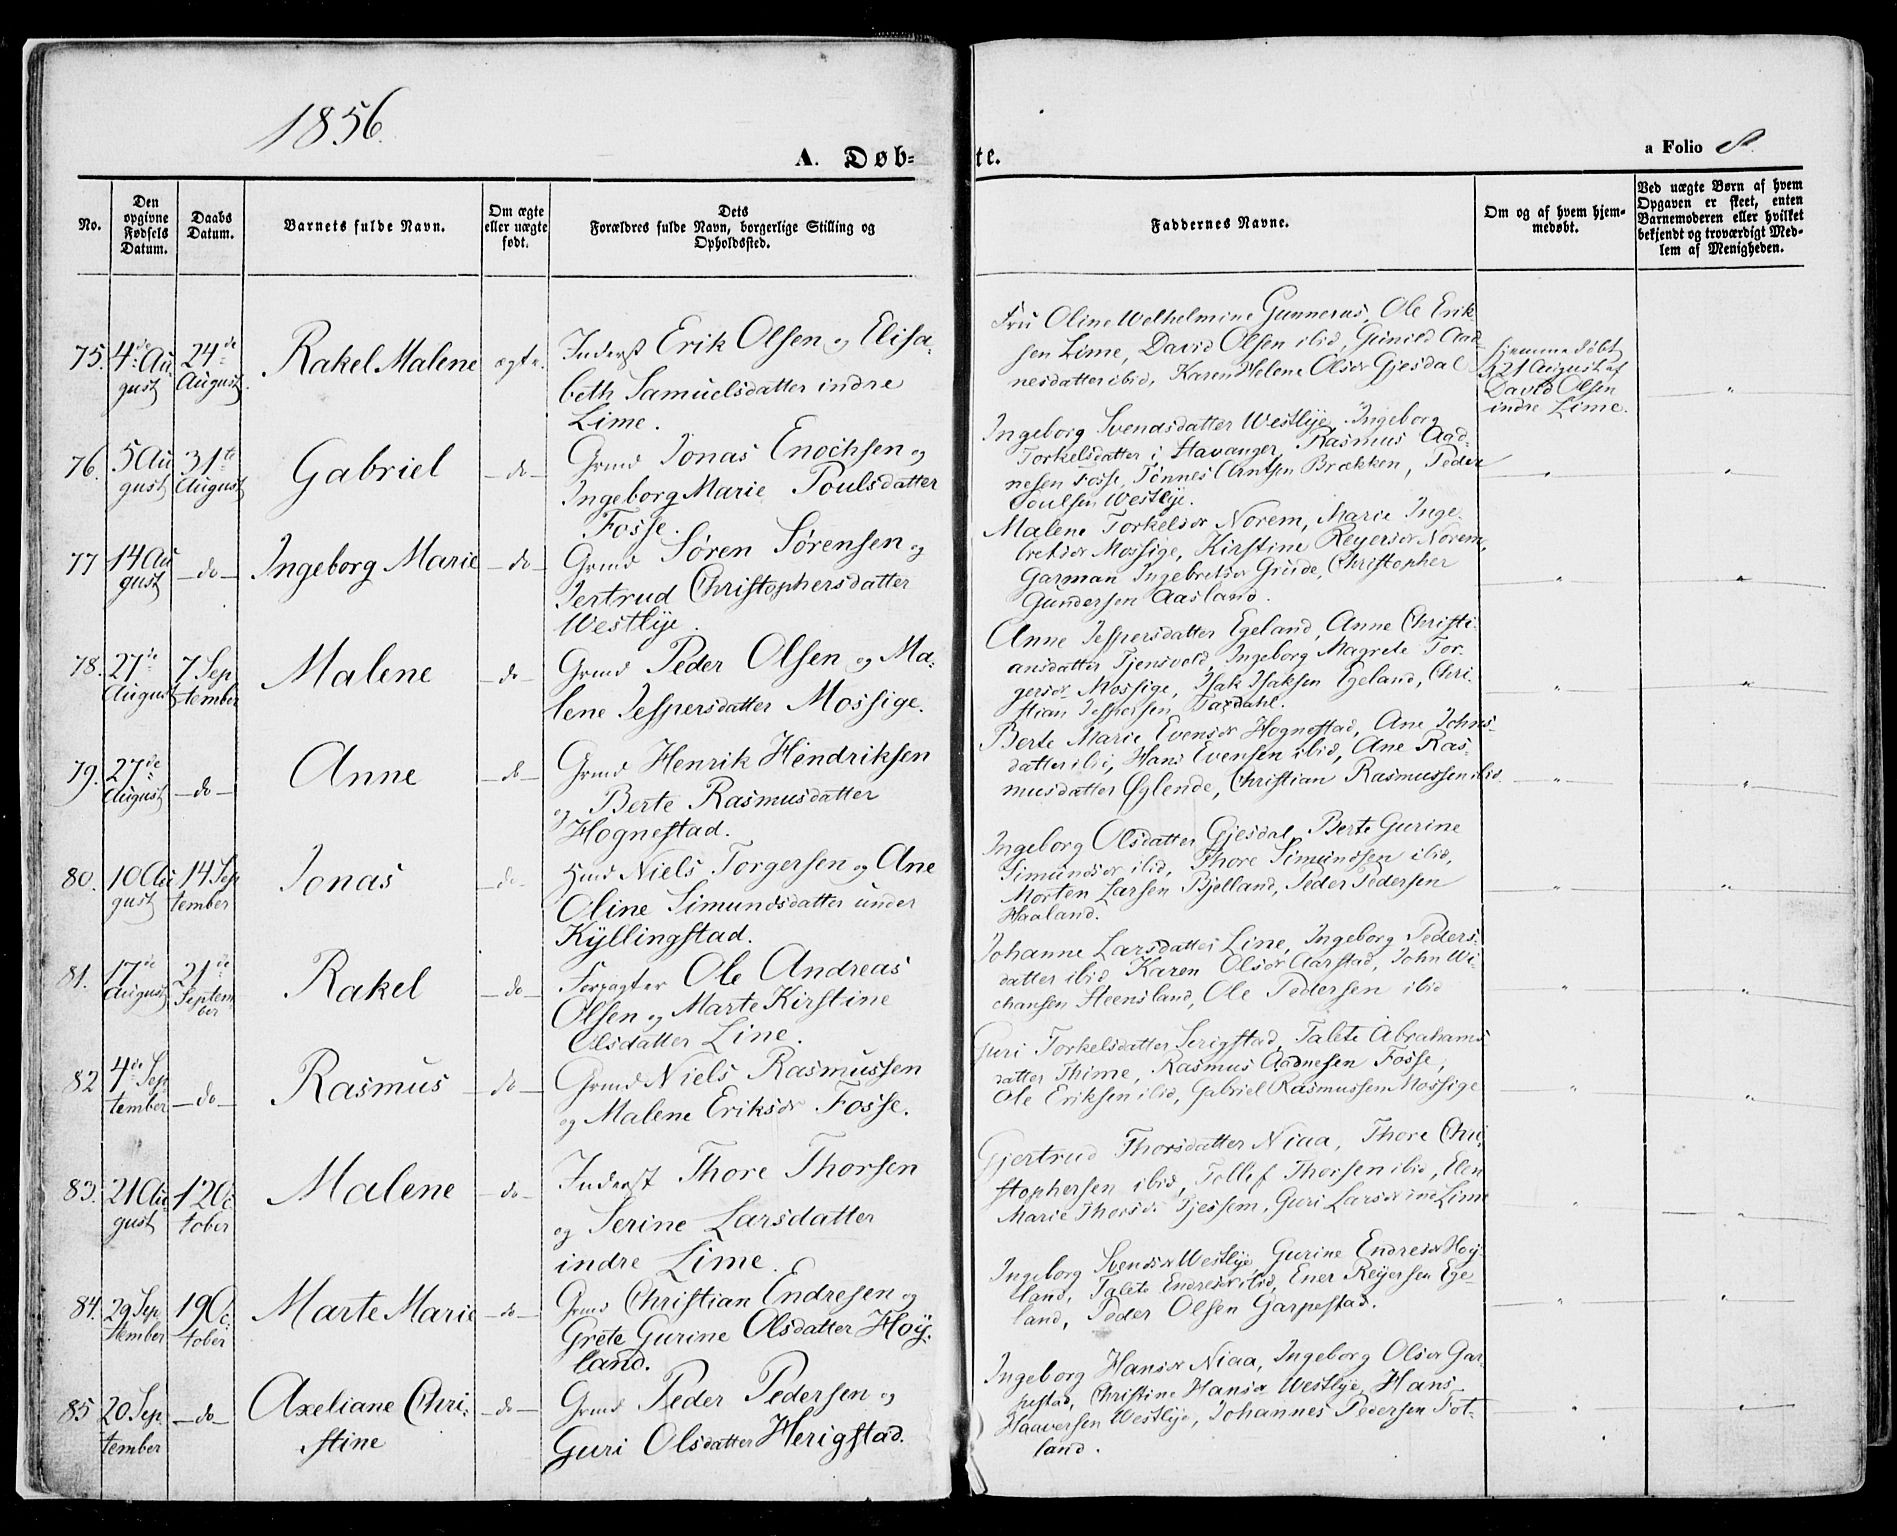 1856.
A. Døb-
te.
a Folio 8.
No.
Den opgivne Fødsels Datum.
Daabs Datum.
Barnets fulde Navn.
Om ægte eller uægte født.
Dets Forældres fulde Navn, borgerlige Stilling og Opholdssted.
Faddernes Navne.
Om og af hvem hjem-
medøbt.
Ved uægte Børn af hvem
Opgaven er skeet, enten
Barnemoderen eller hvilket
bekjendt og troværdigt Med-
lem af Menigheden.
75. 4de Au
gust
24de
August.
Rakel Malene
ægte.
Inderst Erik Olsen og Elisa-
beth Samuelsdatter indre
Lime.
Fru Oline Welhelmine Gunnerus, Ole Erik
sen Lime, David Olsen ibid, Gunild Aad
nesdatter ibid, Karen Helene Olsdr Gjesdal
hjemmedøbt
21 August af
David Olsen
indre Lime.
"
76. 5 Au
gust
31te
August
Gabriel
- do -
Grmd Jonas Enochsen og
Ingeborg Marie Poulsdatter
Fosse.
Ingeborg Svendsdatter Westlye, Ingeborg
Torkelsdatter i Stavanger, Rasmus Aad-
nesen Fosse, Tønnes Arntsen Brækken, Peder
Poulsen Westlye.
"
"
77 14 Au
gust
- do -
Ingeborg Marie
- do -
Grmd Søren Sørensen og
Jertrud Christophersdatter
Westlye.
Malene Torkelsdr Norem, Marie Inge-
bretsdr Mossige, Kirstine Reyersdr Norem,
Garman Ingebretsdr Grude, Christopher
Gundersen Aasland.
"
"
78. 27de
August
7 Sep
tember
Malene
- do -
Grmd Peder Olsen og Ma-
lene Jespersdatter Mossige.
Anne Jespersdatter Egeland, Anne Christi-
ansdatter Tjensvold, Ingeborg Magrete Tor-
gersdr Mossige, Isak Isaksen Egeland, Chri-
stian Jespersen Taxdahl.
"
"
79. 27de
August
- do -
Anne
- do -
Grmd Henrik Hendriksen
og Berte Rasmusdatter
Hognestad.
Berte Marie Evensdr Hognestad, Ane Johns-
datter ibi, Hans Evensen ibid, Ane Ras-
musdatter Øglende, Christian Rasmussen ibid.
"
"
80. 10 Au
gust
14 Sep
tember
Jonas
- do -
Husmd Niels Torgersen og Ane
Oline Simundsdatter under
Kyllingstad.
Ingeborg Olsdatter Gjesdal, Berte Gurine
Simundsdr ibid, Thore Simundsen ibid,
Morten Larsen Bjelland, Peder Pedersen
Haaland.
"
"
81. 17de
August
21de
Septem
ber
Rakel
- do -
Forpagter Ole Andreas
Olsen og Marte Kirstine
Olsdatter Line.
Johanne Larsdatter Line, Ingeborg Peders-
datter ibid, Karen Olsdr Aarstad, John Mi-
chansen Steensland, Ole Pedersen ibid
"
"
82 4de Sep
tember
- do -
Rasmus
- do -
Grmd Niels Rasmussen
og Malene Eriksdr Fosse.
Guri Torkelsdatter Serigstad, Talete Abrahams
datter Thime, Rasmus Aadnesen Fosse,
Ole Eriksen ibid, Gabriel Rasmussen Mossige
"
"
83. 21 Au
gust
12 Oc
tober
Malene
- do -
Inderst Thore Thorsen
og Serine Larsdatter
indre Lime.
Gjertrud Thorsdatter Niaa, Thore Chri
stophersen ibid, Tollef Thorsen ibid, Elen
Marie Thorsdr Tjessem, Guri Larsdr ine Lime
"
"
84. 29 Sep
tember
19 Oc
tober
Marte Marie
- do -
Grmd Christian Endresen og
Grete Gurine Olsdatter Høy-
land.
Ingeborg Svensdr Westlye, Gurine Endresdr Høy
land, Talete Endresdr ibid, Ener Reyersen Ege-
land, Peder Olsen Garpestad.
"
"
85 20 Sep
tember
- do -
Axeliane Chri-
stine
- do -
Grmd Peder Pedersen og
Guri Olsdatter Herigstad.
Ingeborg Hansdr Niaa, Ingeborg Olsdr Gar-
pestad, Christine Hansdr Westlye, Hans
Haaversen Westlye, Johannes Pedersen Fot-
land.
"
"